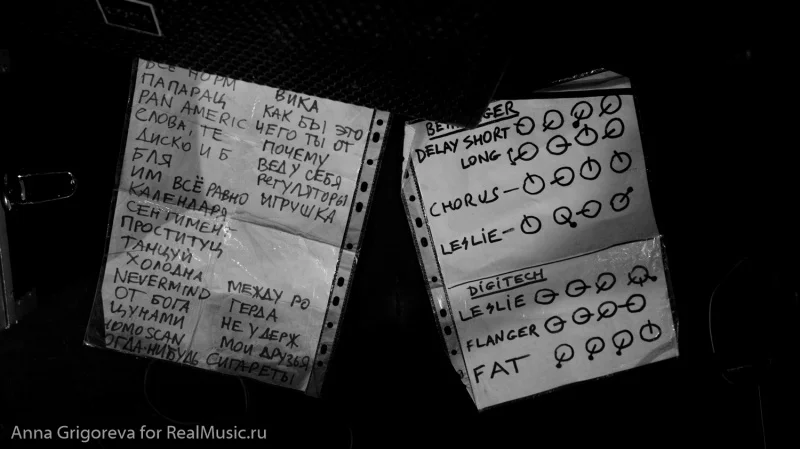 ВСЕ НОРМ
ПАПАРАЦ
PAN AMERIC
СЛОВА, ТЕ
ДИСКО И Б
БЛЯ
ИМ ВСЁ РАВНО
КАЛЕНДАРЯ
СЕНТИМЕН
ПРОСТИТУЦ
ТАНЦУЙ
ХОЛОДНА
NEVERMIND
ОТ БОГА
ЦУНАМИ
HOMOSCAN
ОГДА-НИБУДЬ
ВИКА
КАК БЫ ЭТО
ЧЕГО ТЫ ОТ
ПОЧЕМУ
ВЕДУ СЕБЯ
РЕГУЛЯТОРЫ
ИГРУШКА
МЕЖДУ РО
ГЕРДА
НЕ УДЕРЖ
МОИ ДРУЗЬЯ
СИГАРЕТЫ
BEHRINGER
DELAY SHORT
LONG
CHORUS
LESLIE
DIGITECH
LESLIE
FLANGER
FAT
Anna Grigoreva for RealMusic.ru